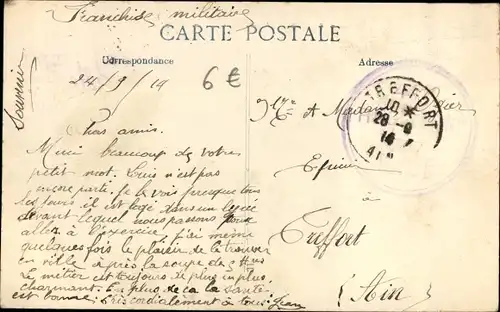 Franchise militaire
CARTE POSTALE
Correspondance
Adresse
24/9/14
6 €
Souvenir
TREFFORT
28-9
14
AIN
Mr et Madame
Chers amis.
Merci beaucoup de votre
petit mot. Louis n'est pas
encore parti. Je le vois presque tous
les jours, il est logé dans un lycée
devant lequel nous passons pour
aller à l'exercice. J'ai même
quelques fois le plaisir de le trouver
en ville après la soupe de 5 heures
Le métier est toujours de plus en plus
charmant. En plus de ça la santé
est bonne. Très cordialement à tous. Jean
Epicier
à
Treffort
(Ain)